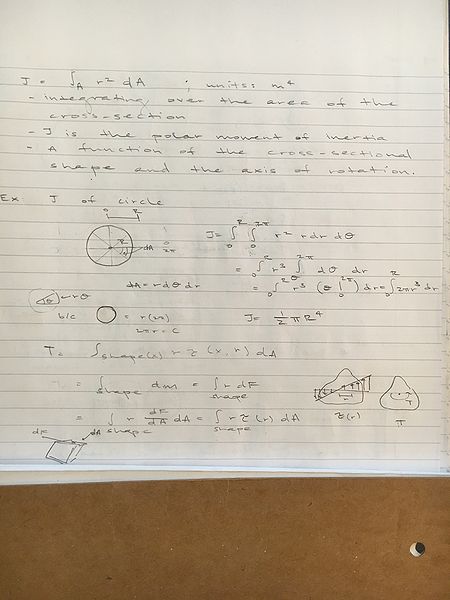 J = ∫_A r² dA ; units: m⁴
- integrating over the area of the
cross-section
- J is the polar moment of inertia
- A function of the cross-sectional
shape and the axis of rotation.
Ex. J of circle
0 R
R
dA
0
2π
J = ∫₀^R ∫₀^2π r² r dr dθ
= ∫₀^R r³ ∫₀^2π dθ dr
dA = r dθ dr
= ∫₀^R r³ (θ|₀^2π) dr = ∫₀^R 2πr³ dr
θ rθ
b/c = r(2π)
2πr = C
J = 1/2 π R⁴
T = ∫shape(x) r τ (x, r) dA
= ∫shape dm = ∫shape r dF
= ∫shape r dF/dA dA = ∫shape r τ(r) dA
r
τ(r)
dF dA